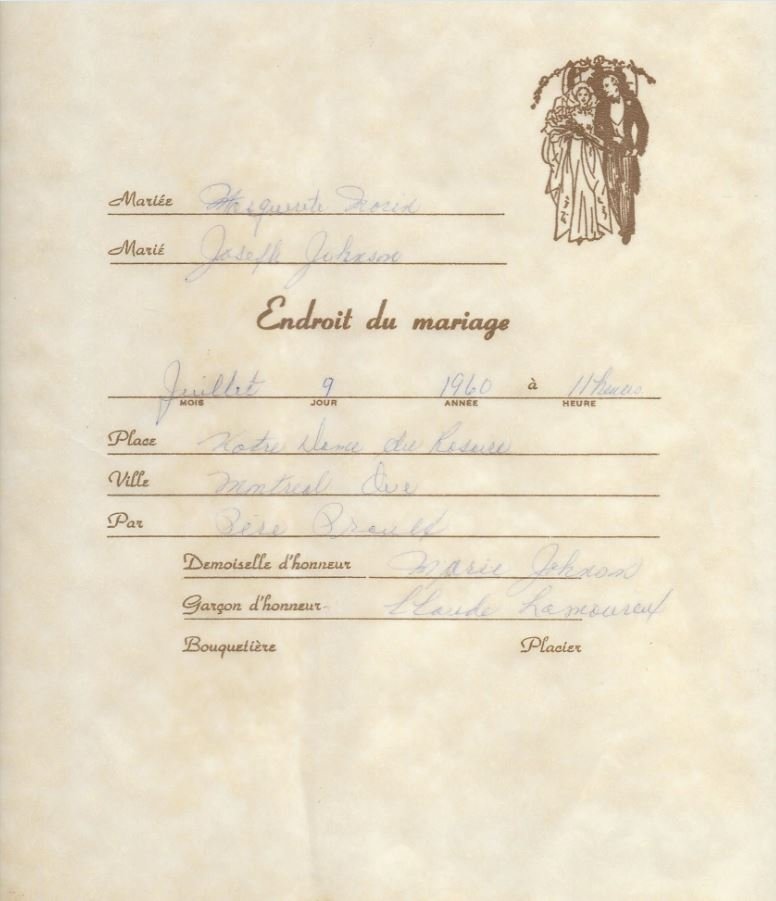 Mariée Marguerite Morin
Marié Joseph Johnson
Endroit du mariage
Juillet 9 1960 à 11 heures
MOIS JOUR ANNÉE HEURE
Place Notre Dame du Rosaire
Ville Montreal Que
Par Père Proulx
Demoiselle d'honneur Marie Johnson
Garçon d'honneur Claude Lamoureux
Bouquetière Placier